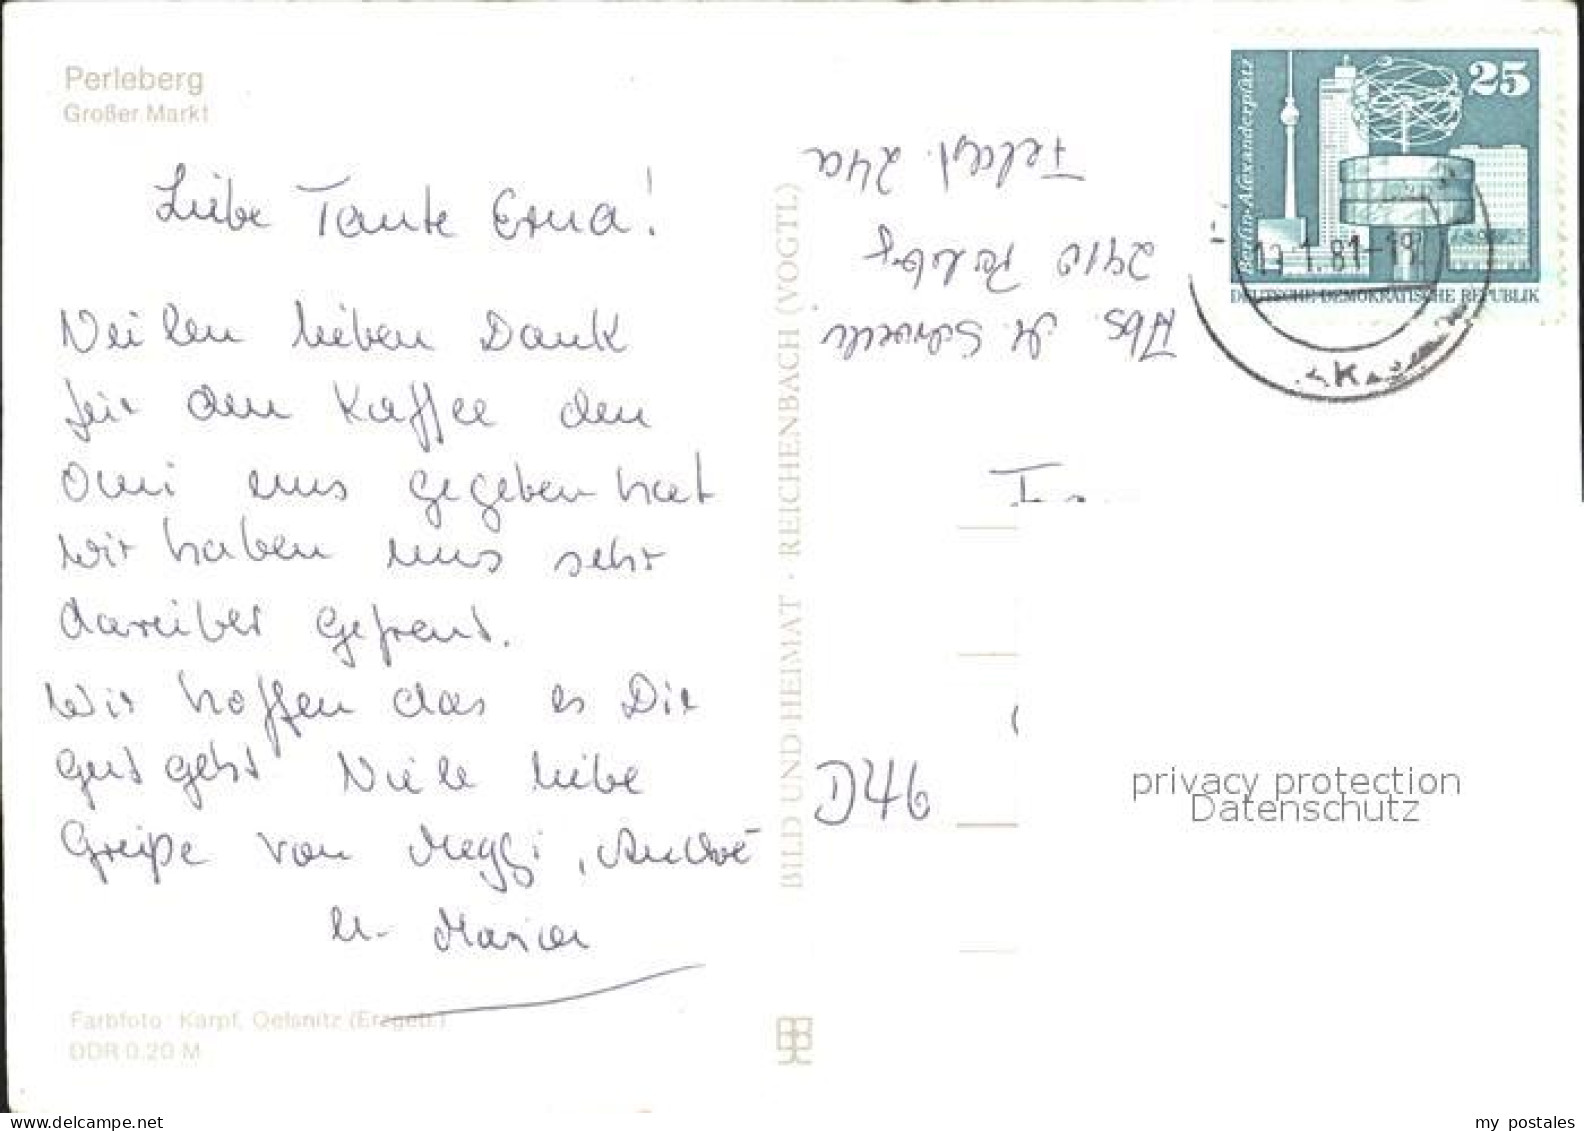 Perleberg
Großer Markt
Liebe Tante Erna!
Vielen lieben Dank
für den Kaffee den
Omi uns gegeben hat
Wir haben uns sehr
darüber gefreut.
Wir hoffen das es Dir
gut geht Viele liebe
Grüße von Meggi, André
u. Marion
Farbfoto: Karpf, Oelsnitz (Erzgeb.)
DDR 0.20 M
BILD UND HEIMAT · REICHENBACH (VOGTL)
Abs. M.
2910 Perlebg
Feldst. 24a
25
Berlin-Alexanderplatz
DEUTSCHE DEMOKRATISCHE REPUBLIK
1.81-19
privacy protection
Datenschutz
www.delcampe.net
my postales